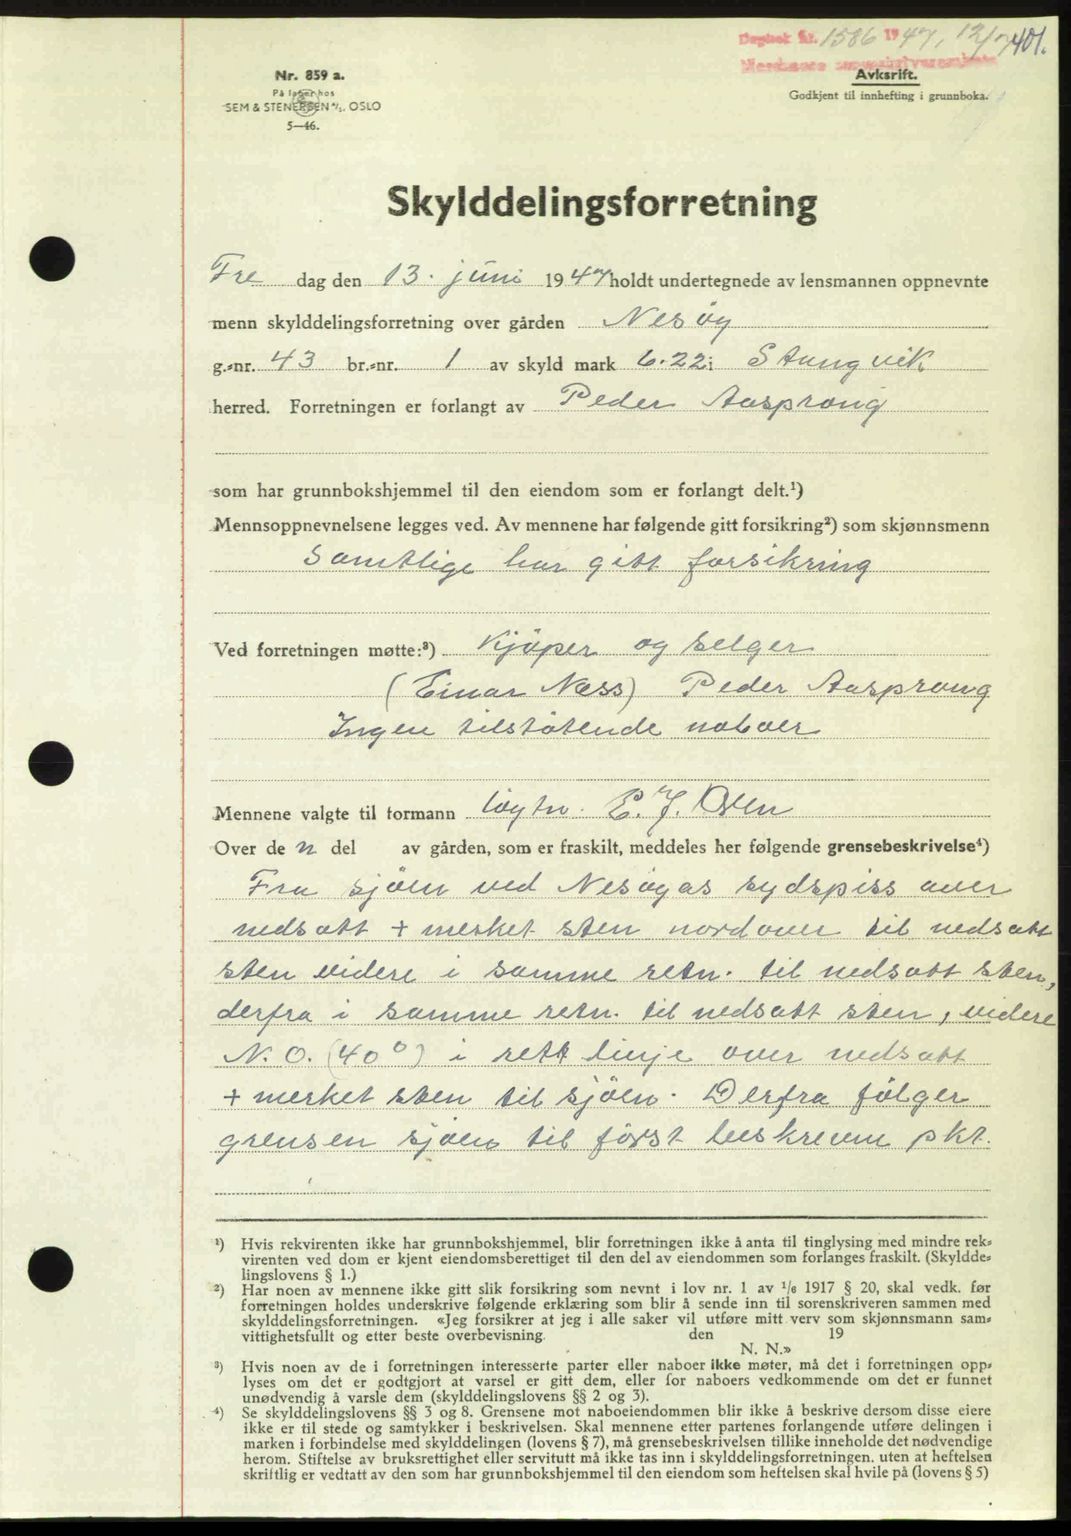 Dagbok nr. 1586 1947, 12/7 401.
Nr. 859 a.
På lager hos
SEM & STENERSEN A/S, OSLO
5—46.
Avksrift.
Godkjent til innhefting i grunnboka.
Skylddelingsforretning
Fre dag den 13. juni 1947 holdt undertegnede av lensmannen oppnevnte
menn skylddelingsforretning over gården Nesøy
g.-nr. 43 br.-nr. 1 av skyld mark 6.22 i Stangvik
herred. Forretningen er forlangt av Peder Aasprong
som har grunnbokshjemmel til den eiendom som er forlangt delt.¹)
Mennsoppnevnelsene legges ved. Av mennene har følgende gitt forsikring²) som skjønnsmenn
Samtlige har gitt forsikring
Ved forretningen møtte:³) Kjöper og selger
(Einar Næss) Peder Aasprong
Ingen tilstötende naboer
Mennene valgte til formann E. J. Oven
Over de n del av gården, som er fraskilt, meddeles her følgende grensebeskrivelse⁴)
Fra sjöen ved Nesöyas sydspiss over
nedsatt + merket sten nordover til nedsatt
sten videre i samme retn. til nedsatt sten,
derfra i samme retn. til nedsatt sten, videre
N.O. (40°) i rett linje over nedsatt
+ merket sten til sjöen. Derfra fölger
grensen sjöen til först beskrevne pkt.
¹) Hvis rekvirenten ikke har grunnbokshjemmel, blir forretningen ikke å anta til tinglysing med mindre rek-
virenten ved dom er kjent eiendomsberettiget til den del av eiendommen som forlanges fraskilt. (Skyldde-
lingslovens § 1.)
²) Har noen av mennene ikke gitt slik forsikring som nevnt i lov nr. 1 av 1/6 1917 § 20, skal vedk. før
forretningen holdes underskrive følgende erklæring som blir å sende inn til sorenskriveren sammen med
skylddelingsforretningen. «Jeg forsikrer at jeg i alle saker vil utføre mitt verv som skjønnsmann sam-
vittighetsfullt og etter beste overbevisning. den 19
N. N.»
³) Hvis noen av de i forretningen interesserte parter eller naboer ikke møter, må det i forretningen opp-
lyses om det er godtgjort at varsel er gitt dem, eller for naboers vedkommende om det er funnet
unødvendig å varsle dem (skylddelingslovens §§ 2 og 3).
⁴) Se skylddelingslovens §§ 3 og 8. Grensene mot naboeiendommen blir ikke å beskrive dersom disse eiere
ikke er til stede og samtykker i beskrivelsen. Skal mennene etter partenes forlangende utføre delingen i
marken i forbindelse med skylddelingen (lovens § 7), må grensebeskrivelsen tillike inneholde det nødvendige
herom. Stiftelse av bruksrettighet eller servitutt må ikke tas inn i skylddelingsforretningen. uten at heftelsen
skriftlig er vedtatt av den som har grunnbokshjemmel til den eiendom som heftelsen skal hvile på (lovens § 5)